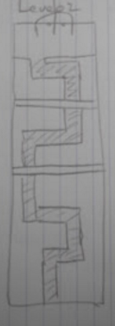 Level 2